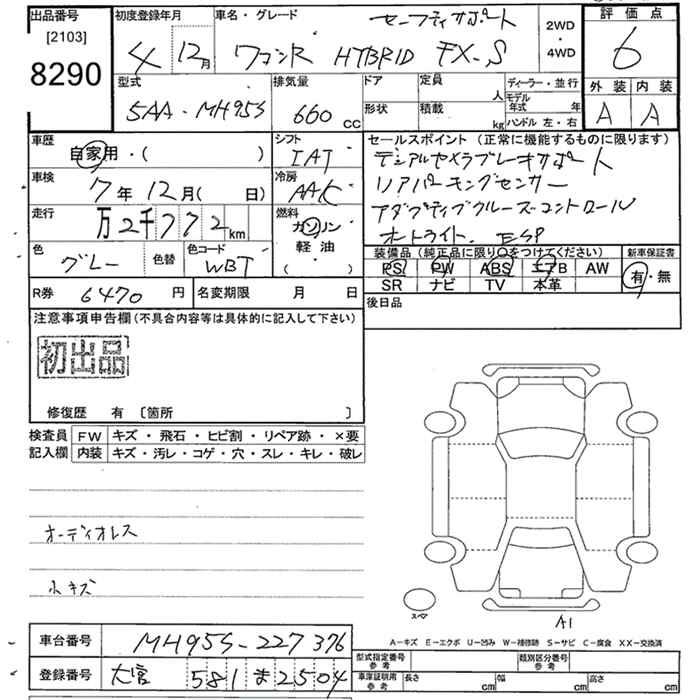 出品番号
[2103]
8290
初度登録年月
4 12月
車名・グレード
セーフティサポート
ワゴンR HYBRID FX-S
2WD
・
4WD
評価点
6
外装 内装
A A
型式
5AA-MH95S
排気量
660 CC
ドア
形状
定員 人
積載 kg
ディーラー・並行
モデル年式 年
ハンドル 左・右
車歴
自家用・( )
シフト
IAT
車検
7年12月( 日)
冷房
AAC
走行
万2千772km
燃料
ガソリン
軽油
( )
色
グレー
色替
色コード
WBT
セールスポイント(正常に機能するものに限ります)
デュアルカメラブレーキサポート
リアパーキングセンサー
アダプティブクルーズコントロール
オートライト ESP
装備品(純正品に限り○をつけてください)
PS PW ABS エアB AW
SR ナビ TV 本革
新車保証書
有・無
R券 6470円
名変期限 月 日
後日品
注意事項申告欄(不具合内容等は具体的に記入して下さい)
初出品
修復歴 有〔箇所 〕
検査員
記入欄
FW キズ・飛石・ヒビ割・リペア跡・×要
内装 キズ・汚レ・コゲ・穴・スレ・キレ・破レ
オーディオレス
小キズ
スペア
A1
A-キズ E-エクボ U-凹み W-補修跡 S-サビ C-腐食 XX-交換済
車台番号 MH95S-227376
登録番号 大宮 581 ま 2504
型式指定番号
参考
類別区分番号
参考
車庫証明用
参考
長さ cm
幅 cm
高さ cm